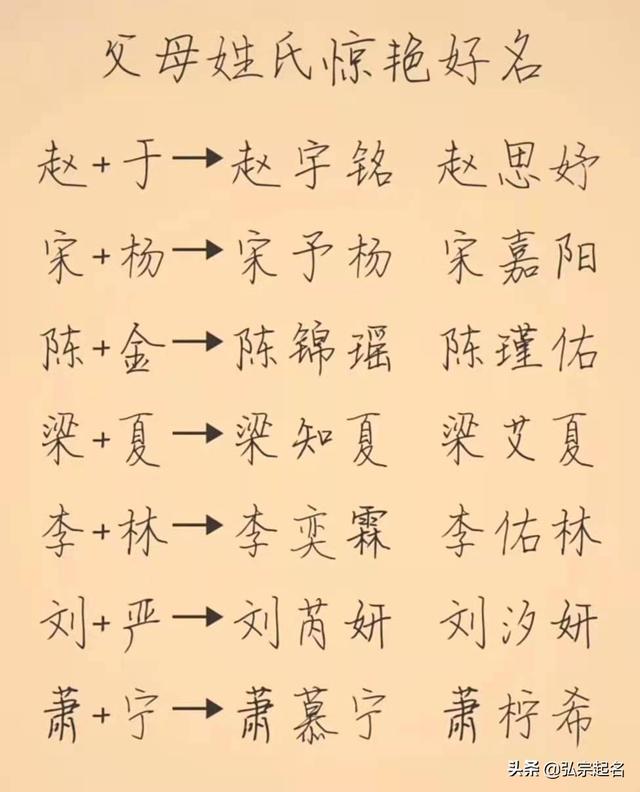 父母姓氏惊艳好名
赵+于→赵宇铭 赵思妤
宋+杨→宋予杨 宋嘉阳
陈+金→陈锦瑶 陈瑾佑
梁+夏→梁知夏 梁艾夏
李+林→李奕霖 李佑林
刘+严→刘芮妍 刘汐妍
萧+宁→萧慕宁 萧柠希
头条 @弘宗起名